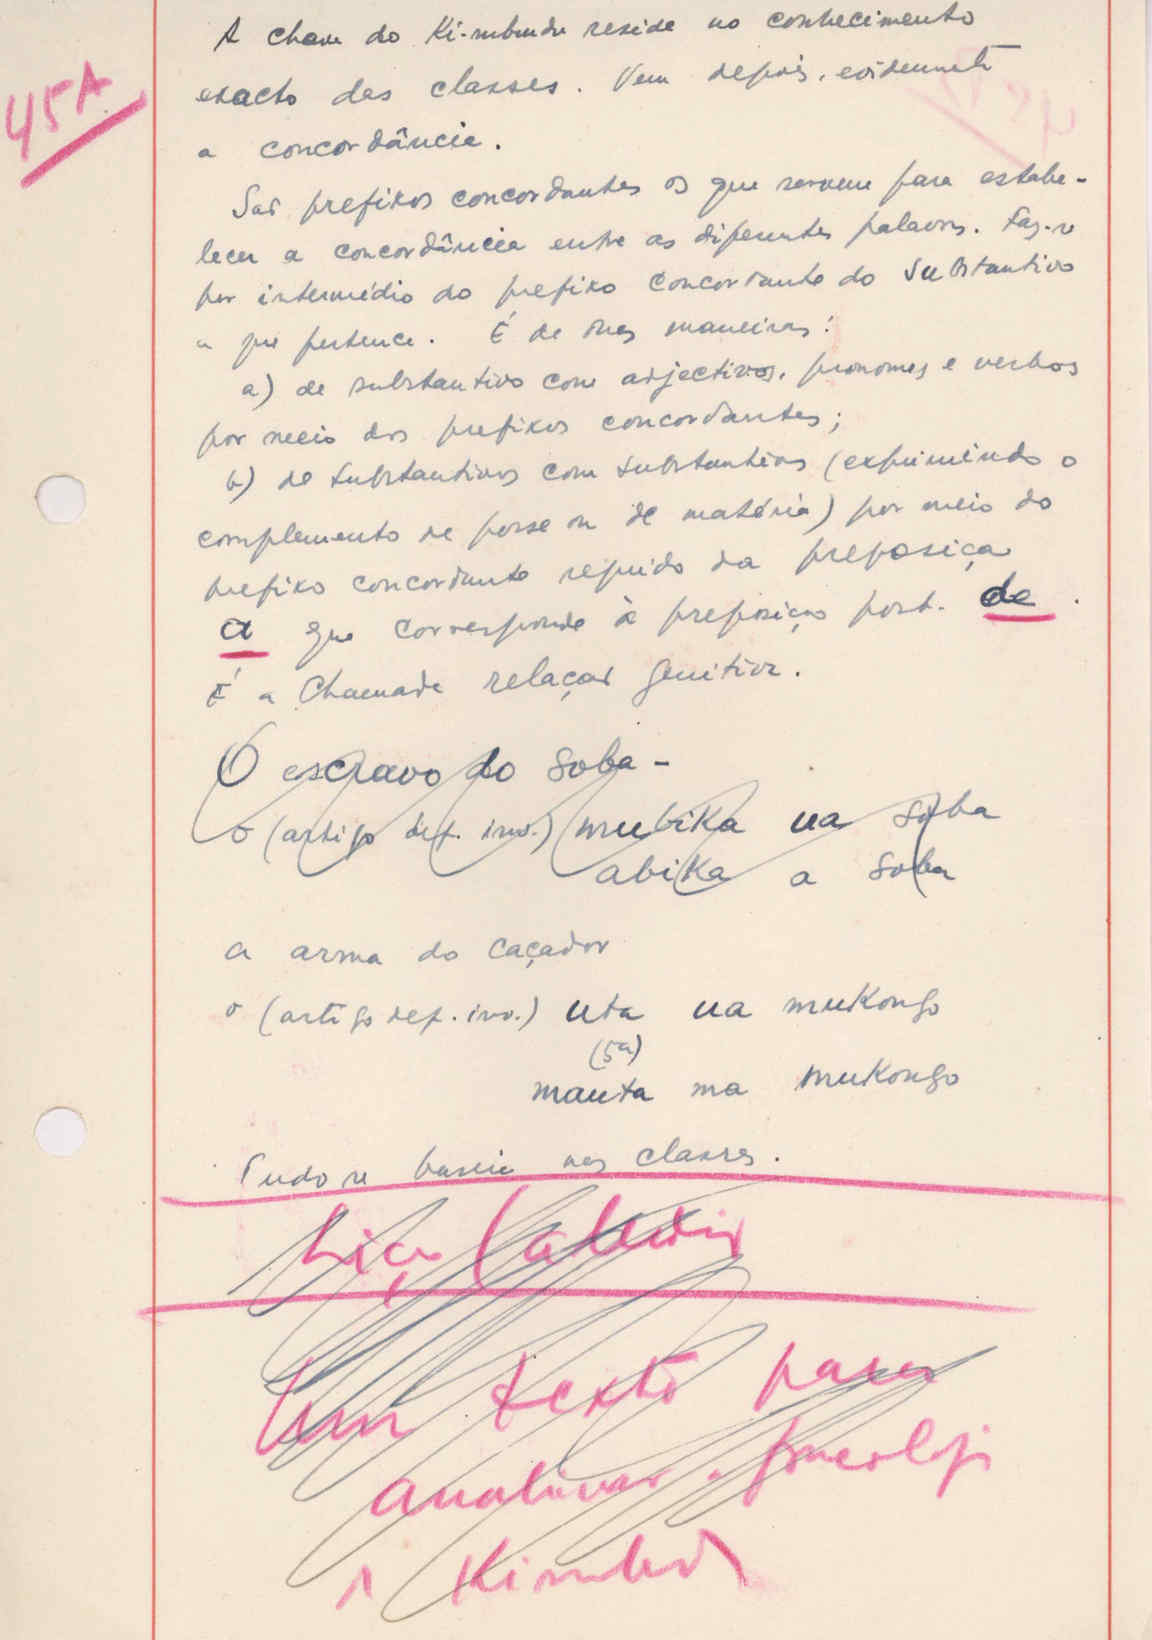 45A
A chave do Ki-mbundu reside no conhecimento
exacto das classes. Vem depois, evidenemte
a concordância.
São prefixos concordantes os que servem para estabe-
lecer a concordância entre as diferentes palavras. Faz-se
por intermédio do prefixo concordante do substantivo
a que pertence. É de duas maneiras:
a) de substantivo com adjectivos, pronomes e verbos
por meio dos prefixos concordantes;
b) de substantivos com substantivos (exprimindo o
complemento de posse ou de matéria) por meio do
prefixo concordante seguido da preposição
a que corresponde à preposição port. de.
É a chamada relação genitiva.
O escravo do soba -
o (artigo def. inv.) mubika ua soba
abika a soba
a arma do caçador
o (artigo def. inv.) uta ua mukongo
(5ª)
mauta ma mukongo
Tudo se baseia nas classes.
Um texto para
analisar a
Kimbud